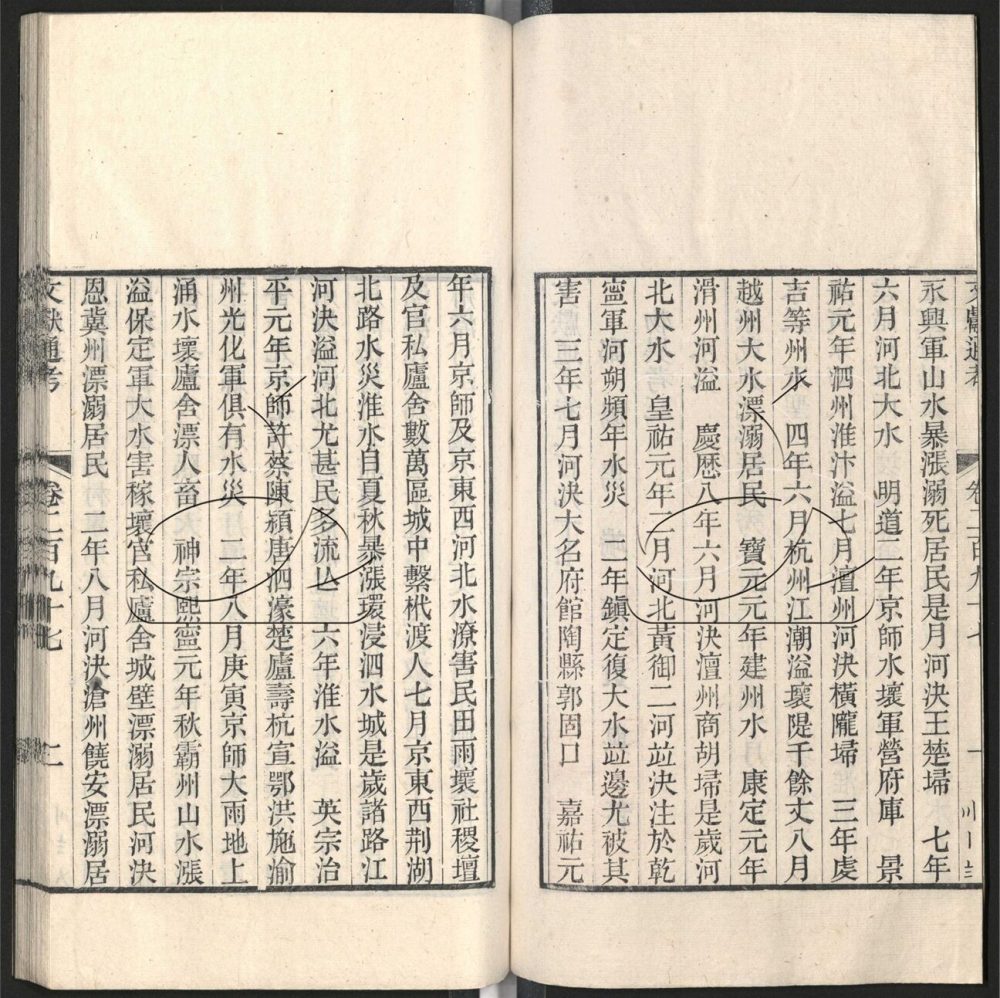 永興軍山水暴漲溺死居民是月河決王楚埽　七年
六月河北大水　明道二年京師水壞軍營府庫　景
祐元年泗州淮汴溢七月澶州河決橫隴埽　三年虔
吉等州水　四年六月杭州江潮溢壞隄千餘丈八月
越州大水漂溺居民　寶元元年建州水　康定元年
滑州河溢　慶歷八年六月河決澶州商胡埽是歲河
北大水　皇祐元年二月河北黃御二河竝決注於乾
寧軍河朔頻年水災　二年鎮定復大水竝邊尤被其
害　三年七月河決大名府館陶縣郭固口　嘉祐元
年六月京師及京東西河北水潦害民田雨壞社稷壇
及官私廬舍數萬區城中繫栰渡人七月京東西荆湖
北路水災淮水自夏秋暴漲環浸泗水城是歲諸路江
河決溢河北尤甚民多流亾　六年淮水溢　英宗治
平元年京師許蔡陳潁唐泗濠楚廬壽杭宣鄂洪施渝
州光化軍俱有水災　二年八月庚寅京師大雨地上
涌水壞廬舍漂人畜　神宗熙寧元年秋霸州山水漲
溢保定軍大水害稼壞官私廬舍城壁漂溺居民河決
恩冀州漂溺居民　二年八月河決滄州饒安漂溺居
文獻通考　卷二百九十七　二